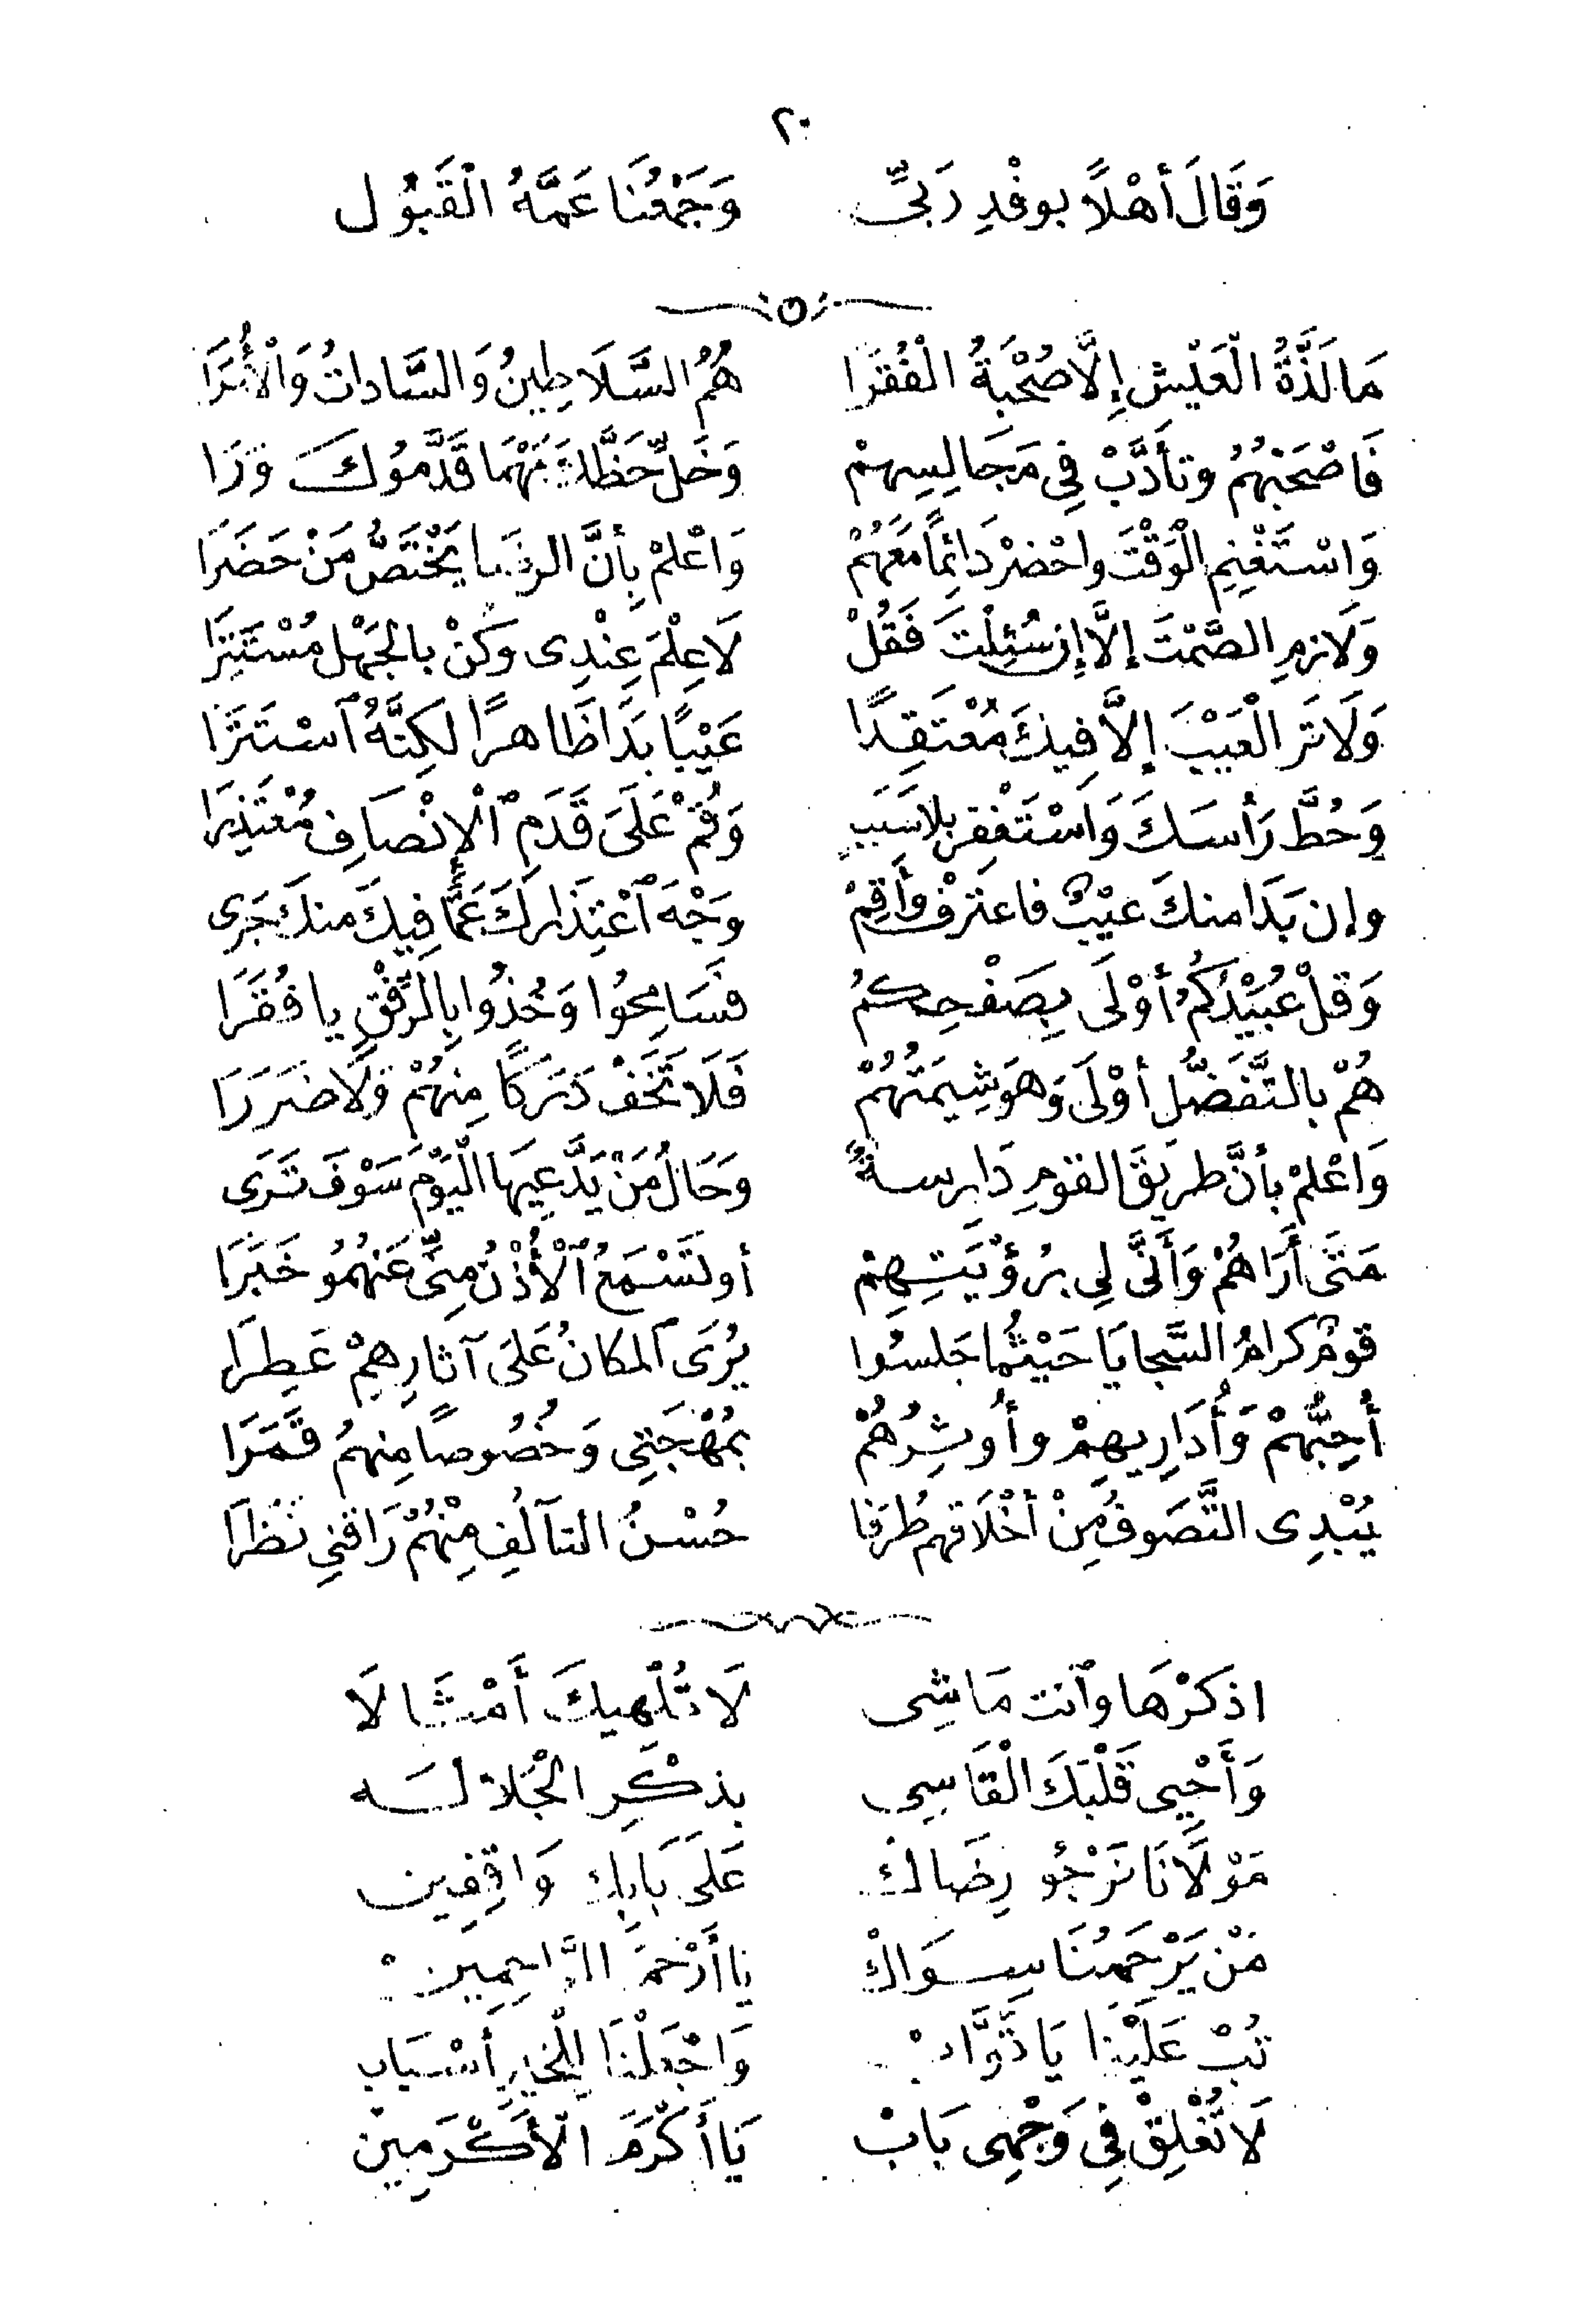 ٢٠
وَقَالَ أَهْلاً بوفْدِ رَبّىِّ وَجَمْعُنَا عَمَّهُ الْقَبُول
مَا لَذَّةُ الْعَيْشِ إِلَّا صُحْبَةُ الْفُقَرَا هُمُ السَّلَاطِينُ وَالسَّادَاتُ وَالْأُمَرَا
فَاصْحَبْهُمُ وتأَدَّبْ فِي مَجَالِسِهِمْ وَخَلِّ حَظَّكَ مَهْمَا قَدَّمُوكَ وَرَا
وَاسْتَغْنِمِ الْوَقْتَ واحْضرْ دَائِمًا مَعَهُمْ وَاعْلمْ بِأنَّ الرضَا يَخْتَصُّ مَنْ حَضَرَا
وَلَازمِ الصَّمْتَ إلَّا إِن سُئِلْتَ فَقُلْ لَا عِلْمَ عِنْدِى وَكنْ بالجَهْلِ مُسْتَتِرَا
وَلَا تَر الْعَيْبَ إلاَّ فِيكَ مُعْتَقِدًا عَيْبًا بَدَا ظَاهرًا لكِنَّهُ ٱسْتَتَرَا
وَحُطَّ رَأْسَكَ وَاسْتَغْفِر بلا سَبَبٍ وَقُمْ عَلَى قَدَمِ ٱلْإِنْصَافِ مُعْتَذِرَا
وإن بَدَا منكَ عيْبٌ فاعترْف وأَقِمْ وَجْهَ ٱعْتِذَارِكَ عَمَّا فِيكَ منكَ جَرى
وَقلْ عُبَيْدُكُمُ أوْلَى بِصَفْحِكمُ فسَامِحُوا وَخُذُوا بِالرِّفْقِ يا فُقَرَا
هُمْ بالتَّفَضُّلِ أوْلَى وَهوَ شِيمَتُهُمْ فَلَا تَخَفْ دَرَكًا مِنهُمْ وَلَا ضَرَرَا
وَاعْلمْ بأنَّ طريقَ القومِ دَارسةٌ وحَالُ مَنْ يَدَّعِيهَا الْيَوْمَ سَوْفَ تَرَى
مَتَى أَرَاهُمْ وَأَنَّى لِي برُؤْيَتِهِمْ أو تَسْمَعُ ٱلْأُذْنُ مِنِّى عَنهُمُو خَبَرَا
قومٌ كرامُ السَّجايَا حَيْثُما جَلسُوا يُرَى ٱلمكانُ عَلَى آثارِهِمْ عَطِرَا
أُحِبُّهُمْ وَأُدَارِيهِمْ وأُوثِرُهُمْ بمُهْجَتِي وَخُصُوصًا مِنهمُ قَمَرَا
يُبْدِى التَّصَوفُ مِنْ أخْلَاقهم طُرَفا حُسْنُ التآلُفِ مِنْهُمْ رَاقنِي نَظَرَا
اذكَرْهَا وَٱنت مَاشِى لَا تُلْهِيكَ أَمْثَالَا
وَأَحْيِى قَلْبَكَ الْقَاسِى بذكْرِ الْجَلالَه
مَوْلَانَا نَرْجُو رِضَاكْ عَلَى بَابِك وَاقِفِين
مَنْ يَرْحَمُنَا سِوَاكْ يَا أَرْحَمَ الرَّاحِمِينْ
تُبْ عَلَيْنَا يَا تَوَّابْ وَاجْعَلْنَا لِلْخَيرِ أَسْبَاب
لَا تُغْلِقْ فِى وَجْهِى بَابْ يَا أَكْرَمَ الْأَكْرَمِينْ